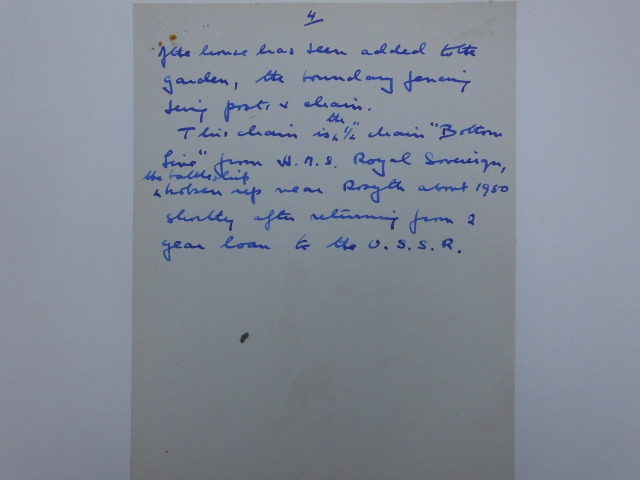 4
of the house has been added to the
garden, the boundary fencing
being posts & chain.
This chain is the 1½" chain "Bottom
Line" from H.M.S. Royal Sovereign,
the battleship
broken up near Rosyth about 1950
shortly after returning from a
year loan to the U.S.S.R.